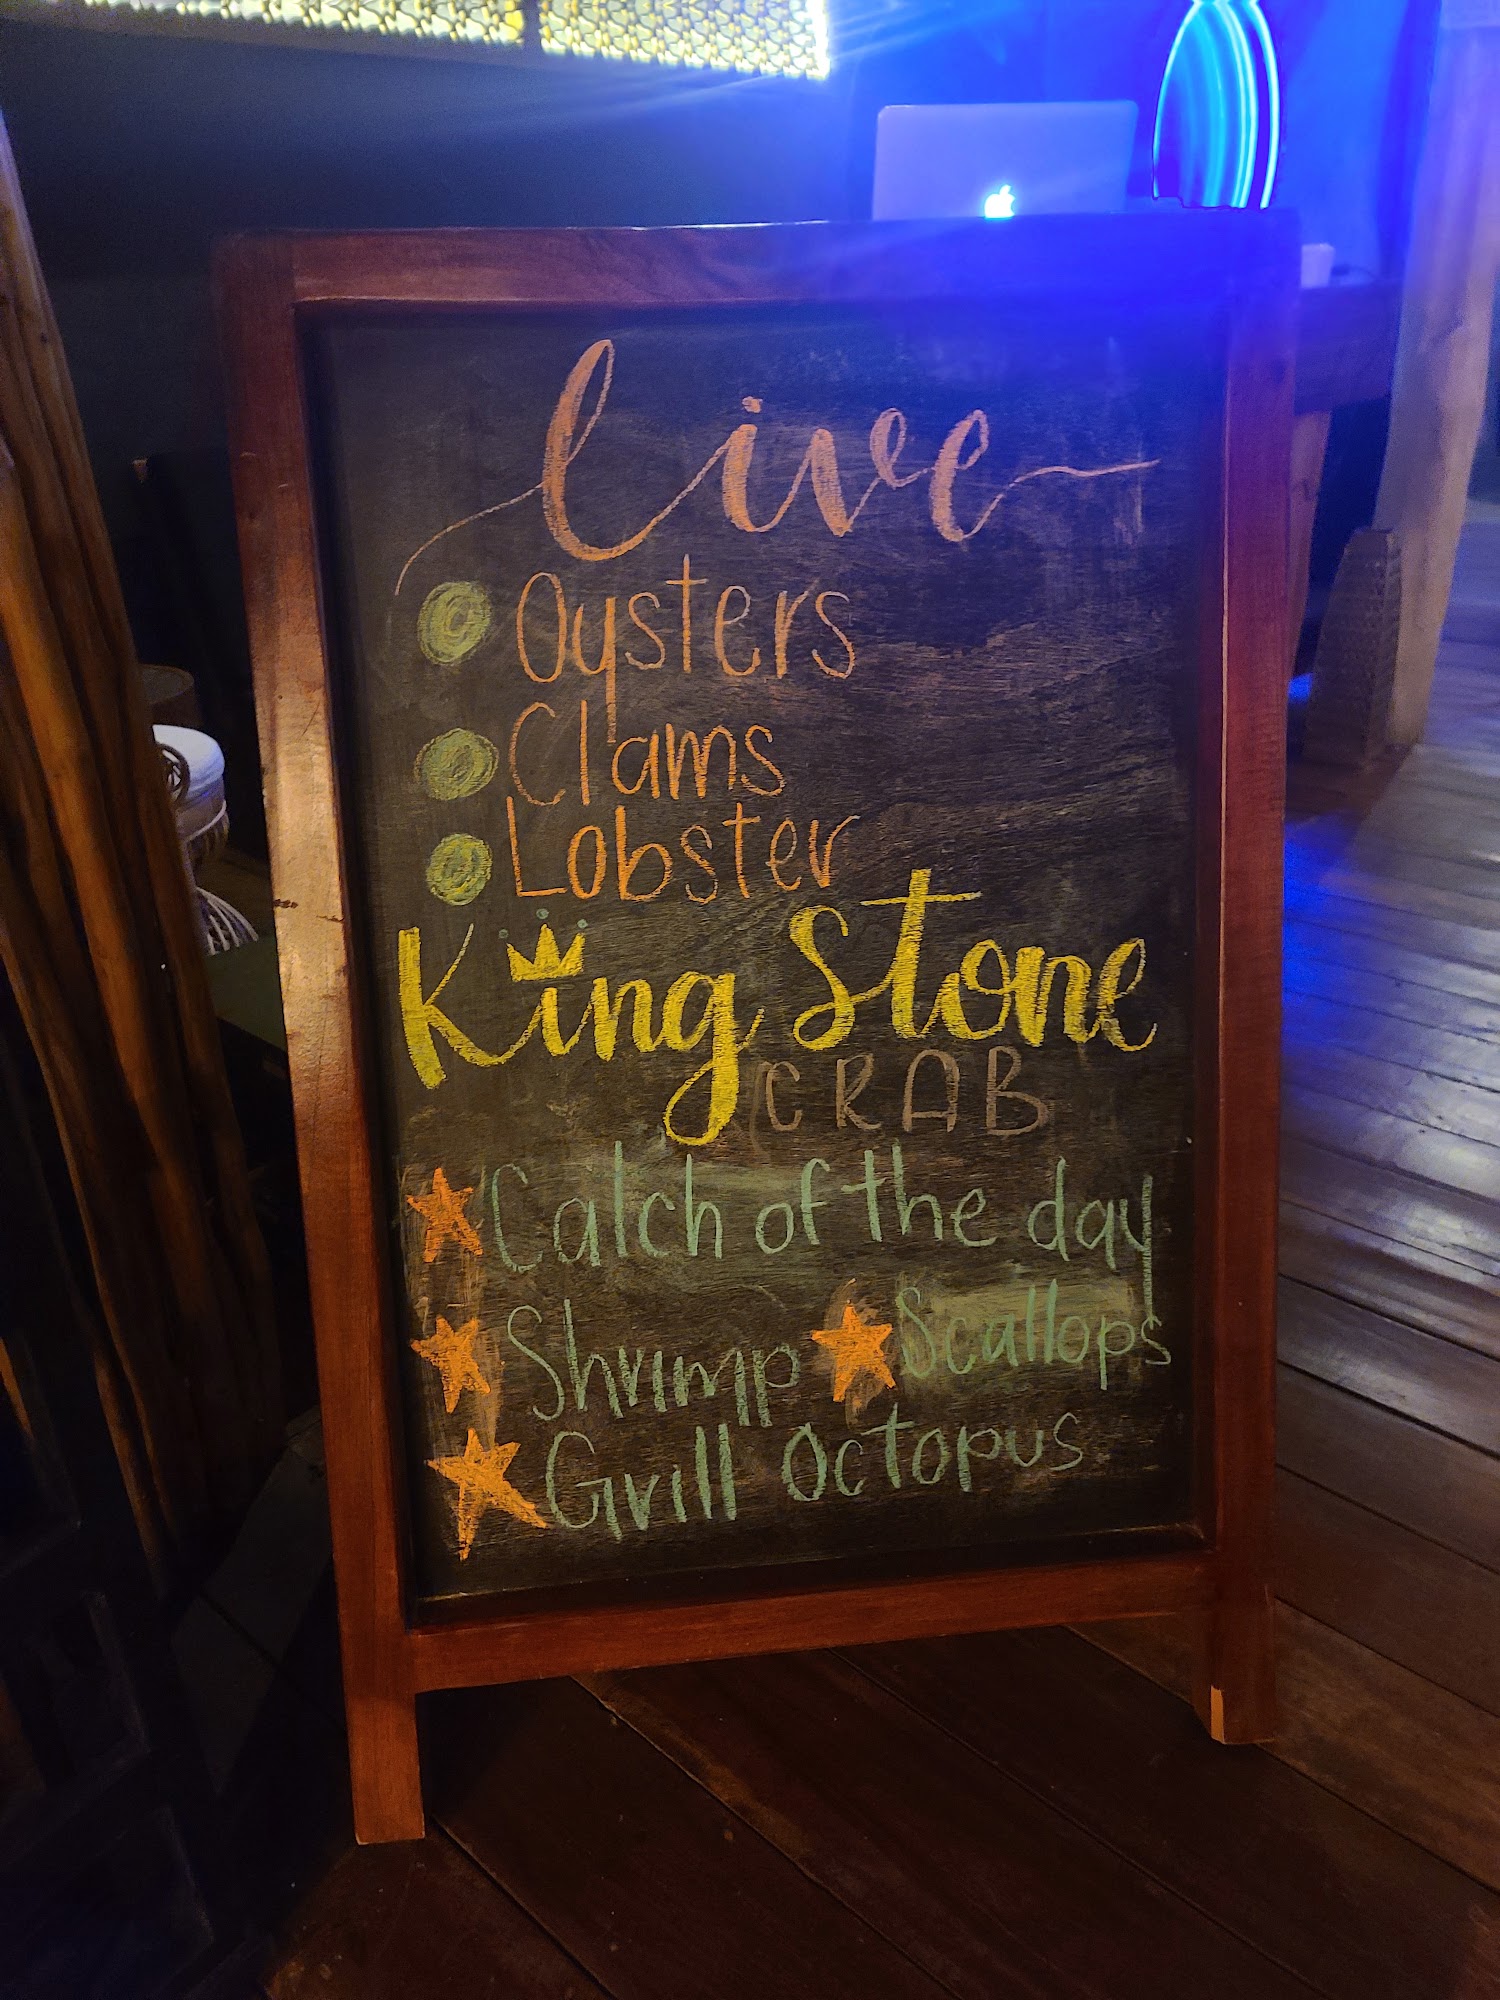 live
Oysters
Clams
Lobster
King Stone
CRAB
Catch of the day
Shrimp Scallops
Grill Octopus